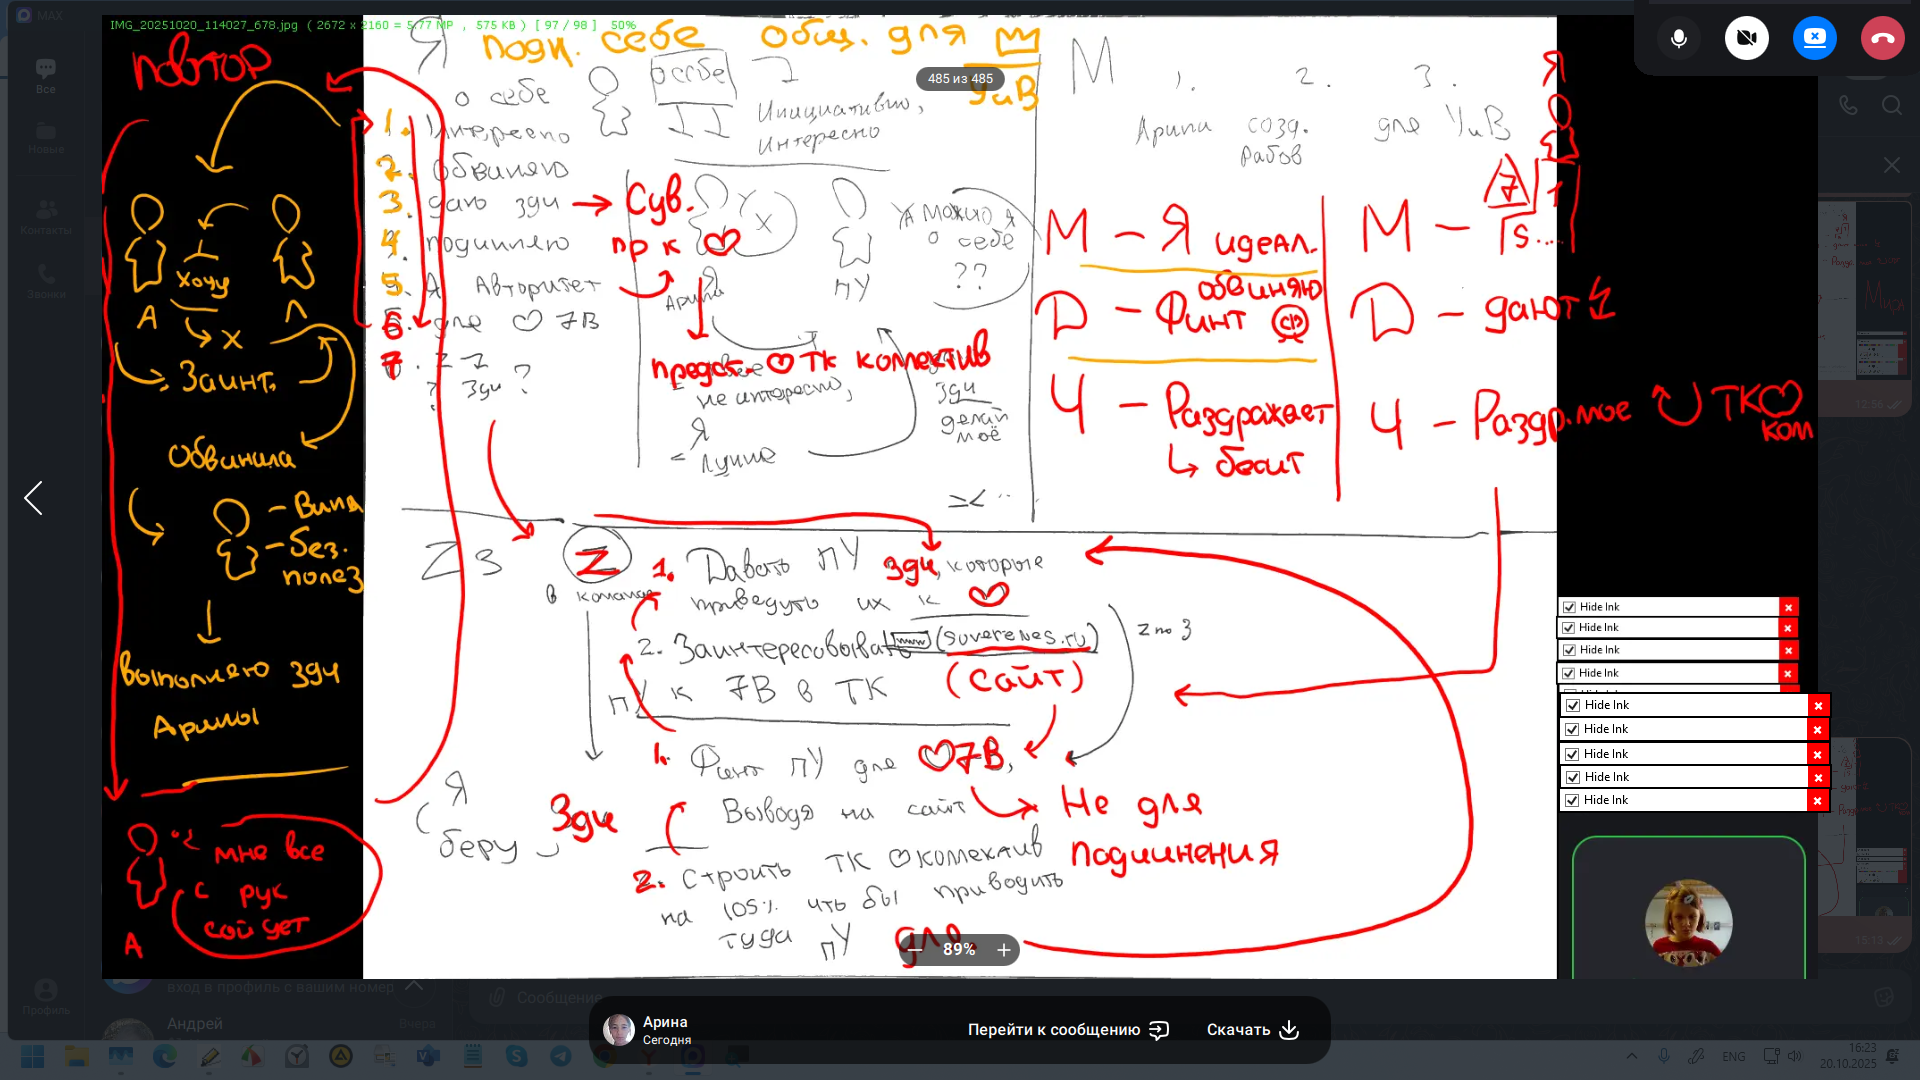 MAX
IMG_20251020_114027_678.jpg ( 2672 x 2160 = 5.77 MP , 575 KB ) [ 97 / 98 ] 50%
485 из 485
Все
Новые
Контакты
Звонки
Профиль
повтор
Хочу
А
Х
Заинт.
Обвинила
- Вина
- без.
полез
выполняю зди
Арины
мне все
с рук
сойдет
А
Я подч. себе общ. для
УиВ
о себе
о себе
1. Интересно
2. обвиняю
3. даю зди → Сув.
4. подчиняю
пр к ♡
5. Я Авторитет
6. для ♡ 7В
7.
Зди ?
Инициативно,
Интересно
У
Х
Я
Арина
ПУ
А можно я
о себе
??
предст. ♡ ТК коллектив
не интересно,
Я
= Лучше
зди
делай
моё
М 1. 2. 3.
Арина созд. для УиВ
рабов
М – Я идеал.
обвиняю
D – Финт
Ч – Раздражает
бесит
Я
7
1
М – S...
D – дают
Ч – Раздр. мое ТК♡
ком
Z 3
Z
в команде
1. Давать ПУ зди, которые
приведут их к ♡
2. Заинтересовывать www (suverenes.ru)
ПУ к 7В в ТК (сайт)
Z по 3
1. Финт ПУ для ♡7В,
Выводя на сайт → Не для
подчинения
Я
беру Зди
2. Строить ТК ♡коллектив
на 105% что бы приводить
туда ПУ для
Hide Ink
Hide Ink
Hide Ink
Hide Ink
Hide Ink
Hide Ink
Hide Ink
Hide Ink
Hide Ink
12:56
15:13
89%
вход в профиль с вашим номер
Сообщение
Андрей
Вчера
Арина
Сегодня
Перейти к сообщению
Скачать
ENG
16:23
20.10.2025